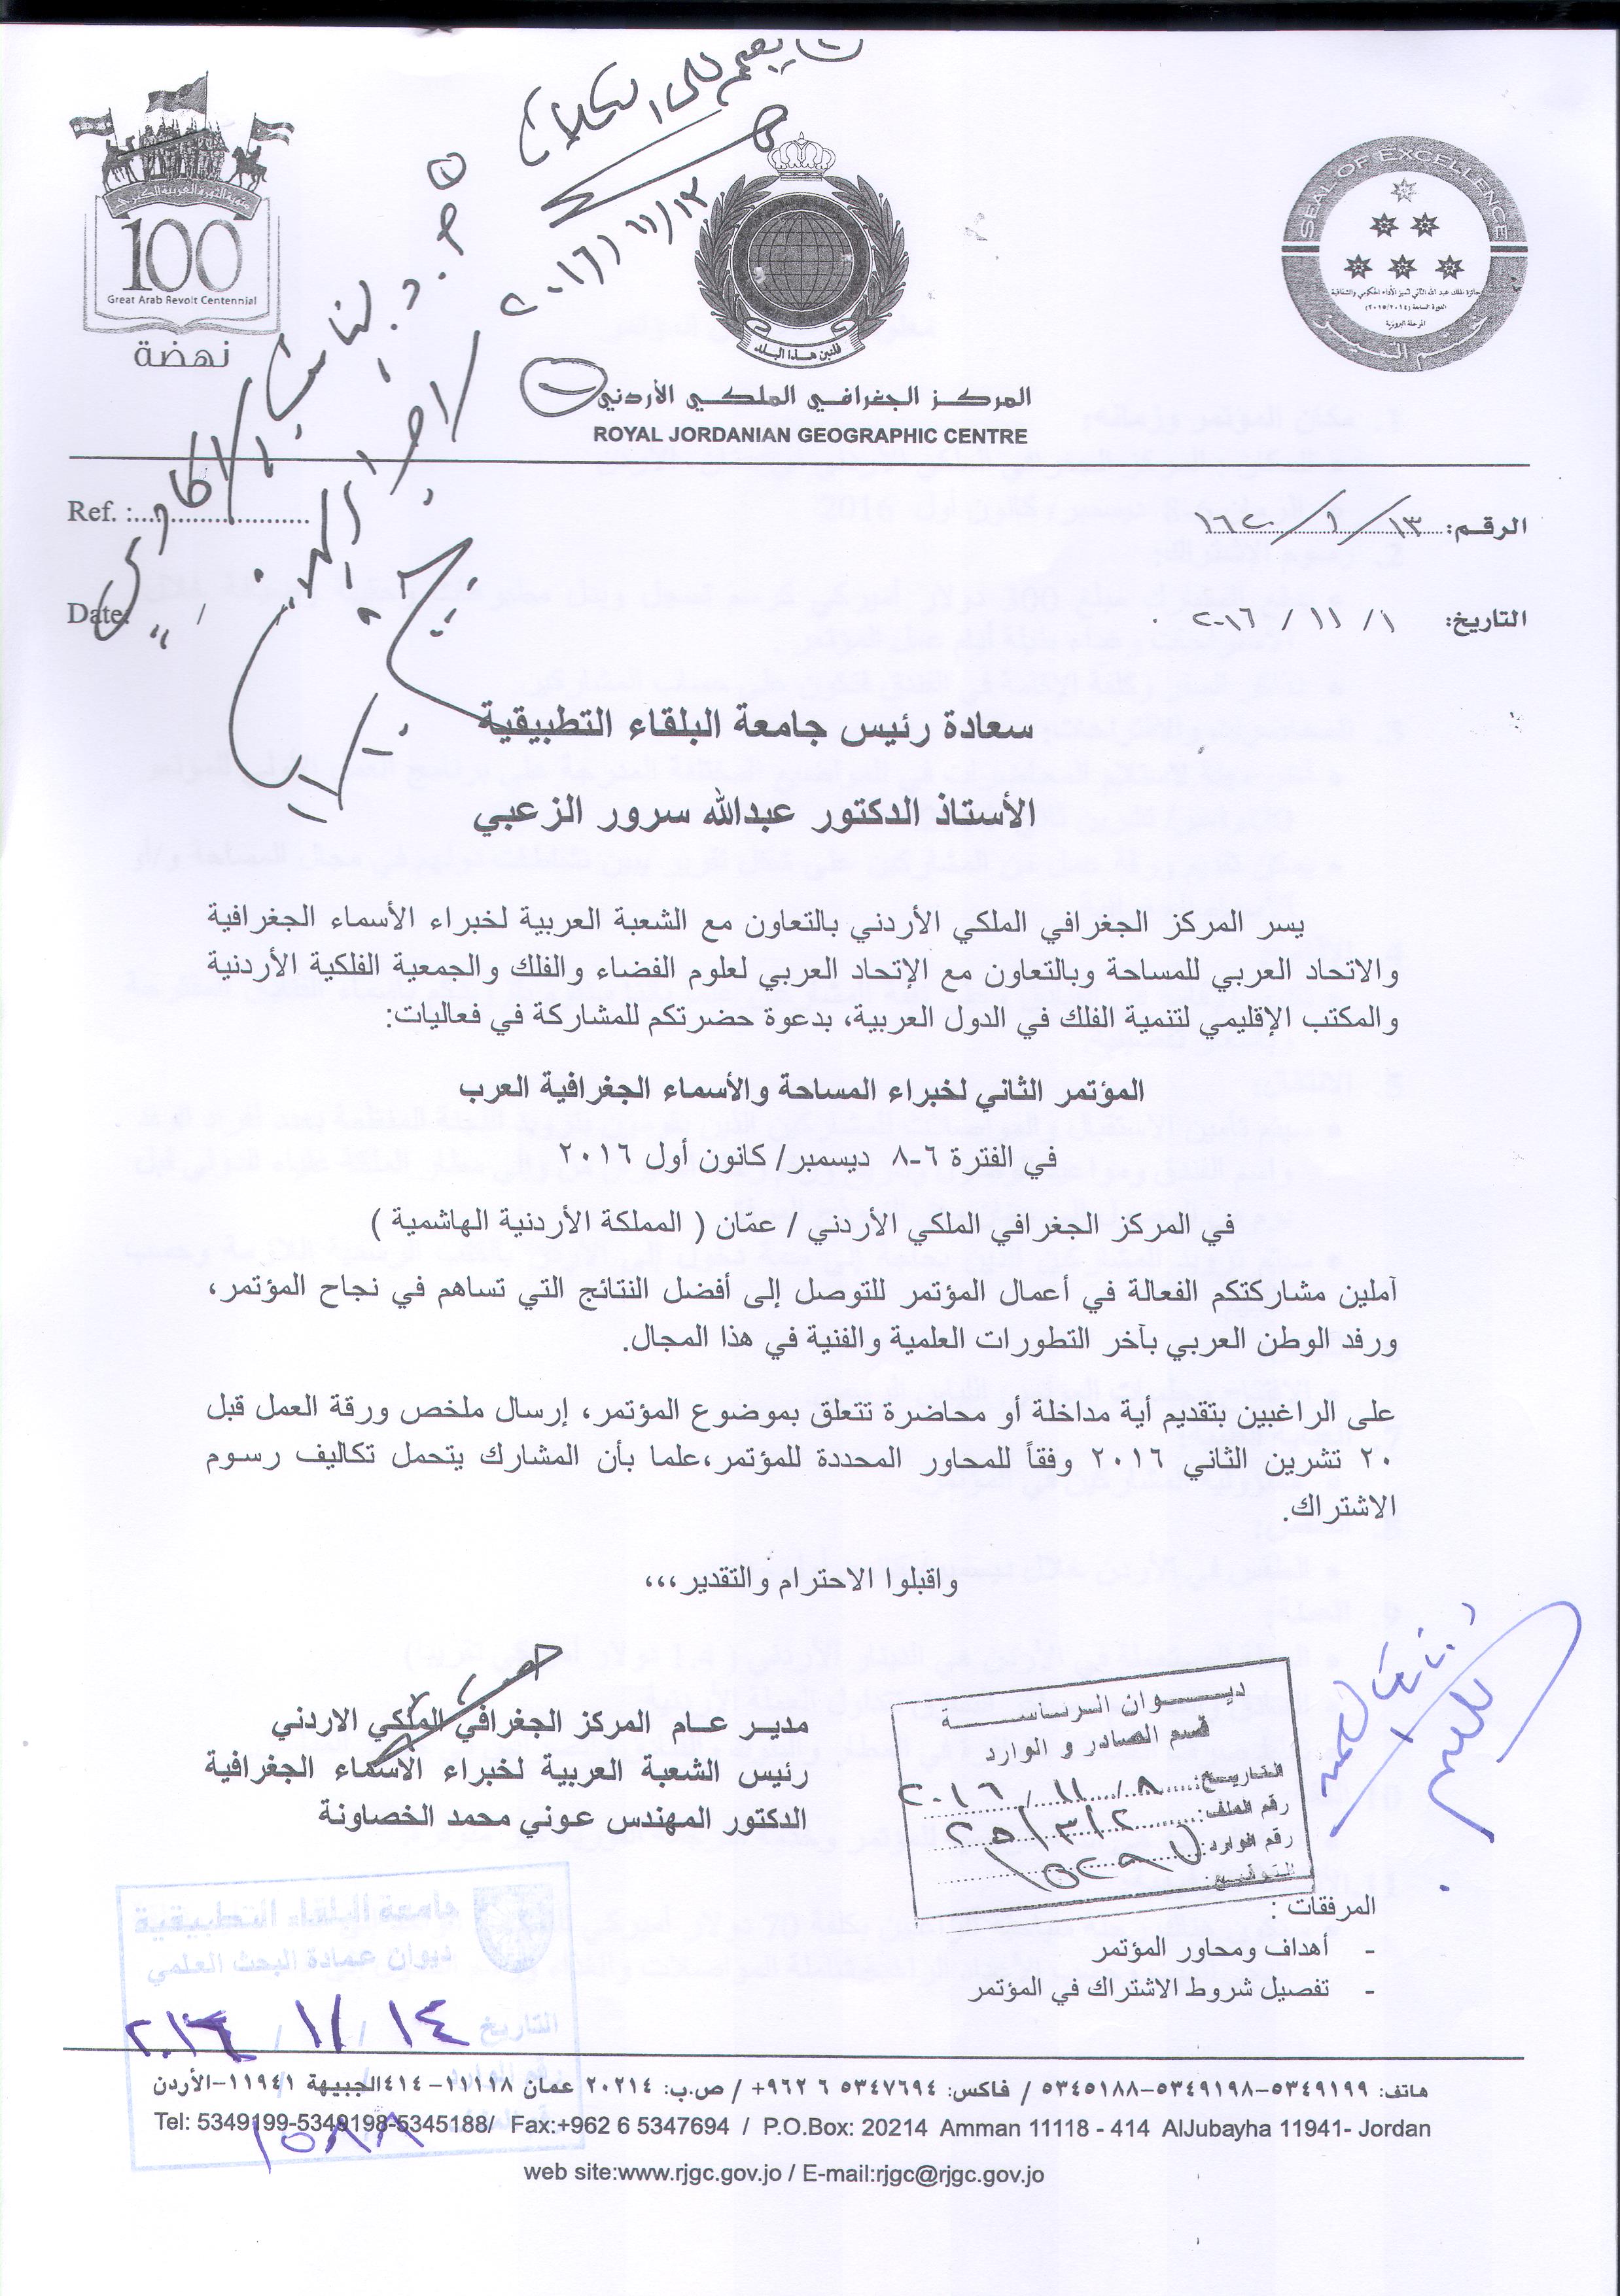 مئوية الثورة العربية الكبرى
100
Great Arab Revolt Centennial
نهضة
SEAL OF EXCELLENCE
المرحلة البرونزية
ختم التميز
فلنبن هذا البلد
المركز الجغرافي الملكي الأردني
ROYAL JORDANIAN GEOGRAPHIC CENTRE
٢٠١٦/١١/١٣
Ref. :
الرقم:
Date:
التاريخ: ١ / ١١ / ٢٠١٦
سعادة رئيس جامعة البلقاء التطبيقية
الأستاذ الدكتور عبدالله سرور الزعبي
يسر المركز الجغرافي الملكي الأردني بالتعاون مع الشعبة العربية لخبراء الأسماء الجغرافية
والاتحاد العربي للمساحة وبالتعاون مع الإتحاد العربي لعلوم الفضاء والفلك والجمعية الفلكية الأردنية
والمكتب الإقليمي لتنمية الفلك في الدول العربية، بدعوة حضرتكم للمشاركة في فعاليات:
المؤتمر الثاني لخبراء المساحة والأسماء الجغرافية العرب
في الفترة ٦-٨ ديسمبر/ كانون أول ٢٠١٦
في المركز الجغرافي الملكي الأردني / عمّان ( المملكة الأردنية الهاشمية )
آملين مشاركتكم الفعالة في أعمال المؤتمر للتوصل إلى أفضل النتائج التي تساهم في نجاح المؤتمر،
ورفد الوطن العربي بآخر التطورات العلمية والفنية في هذا المجال.
على الراغبين بتقديم أية مداخلة أو محاضرة تتعلق بموضوع المؤتمر، إرسال ملخص ورقة العمل قبل
٢٠ تشرين الثاني ٢٠١٦ وفقاً للمحاور المحددة للمؤتمر،علما بأن المشارك يتحمل تكاليف رسوم
الاشتراك.
واقبلوا الاحترام والتقدير،،،
مدير عام المركز الجغرافي الملكي الاردني
رئيس الشعبة العربية لخبراء الأسماء الجغرافية
الدكتور المهندس عوني محمد الخصاونة
ديوان الرئاسة
قسم الصادر و الوارد
التاريخ: ٨ / ١١ / ٢٠١٦
رقم الملف:
رقم الوارد:
التوقيع:
المرفقات :
- أهداف ومحاور المؤتمر
- تفصيل شروط الاشتراك في المؤتمر
جامعة البلقاء التطبيقية
ديوان عمادة البحث العلمي
التاريخ
رقم الوارد
١٥٨٨
هاتف: ٥٣٤٩١٩٩-٥٣٤٩١٩٨-٥٣٤٥١٨٨ / فاكس: ٥٣٤٧٦٩٤ ٦ ٩٦٢+ / ص.ب: ٢٠٢١٤ عمان ١١١١٨-٤١٤الجبيهة ١١٩٤١-الأردن
Tel: 5349199-5349198-5345188/ Fax:+962 6 5347694 / P.O.Box: 20214 Amman 11118 - 414 AlJubayha 11941- Jordan
web site:www.rjgc.gov.jo / E-mail:rjgc@rjgc.gov.jo